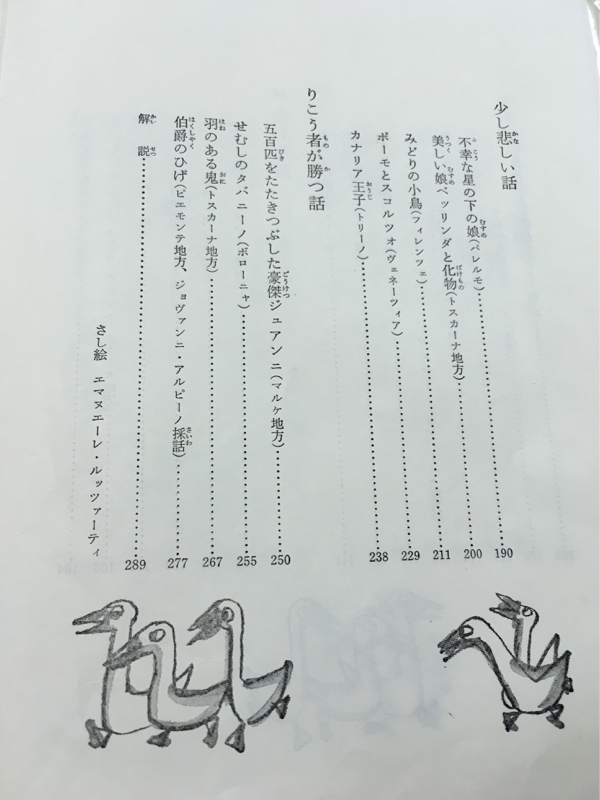 少し悲しい話
不幸な星の下の娘(パレルモ)……190
美しい娘ベッリンダと化物(トスカーナ地方)……200
みどりの小鳥(フィレンツェ)……211
ポーモとスコルツォ(ヴェネーツィア)……229
カナリア王子(トリーノ)……238
りこう者が勝つ話
五百匹をたたきつぶした豪傑ジュアンニ(マルケ地方)……250
せむしのタバニーノ(ボローニャ)……255
羽のある鬼(トスカーナ地方)……267
伯爵のひげ(ピエモンテ地方、ジョヴァンニ・アルピーノ採話)……277
解説……289
さし絵 エマヌエーレ・ルッツァーティ